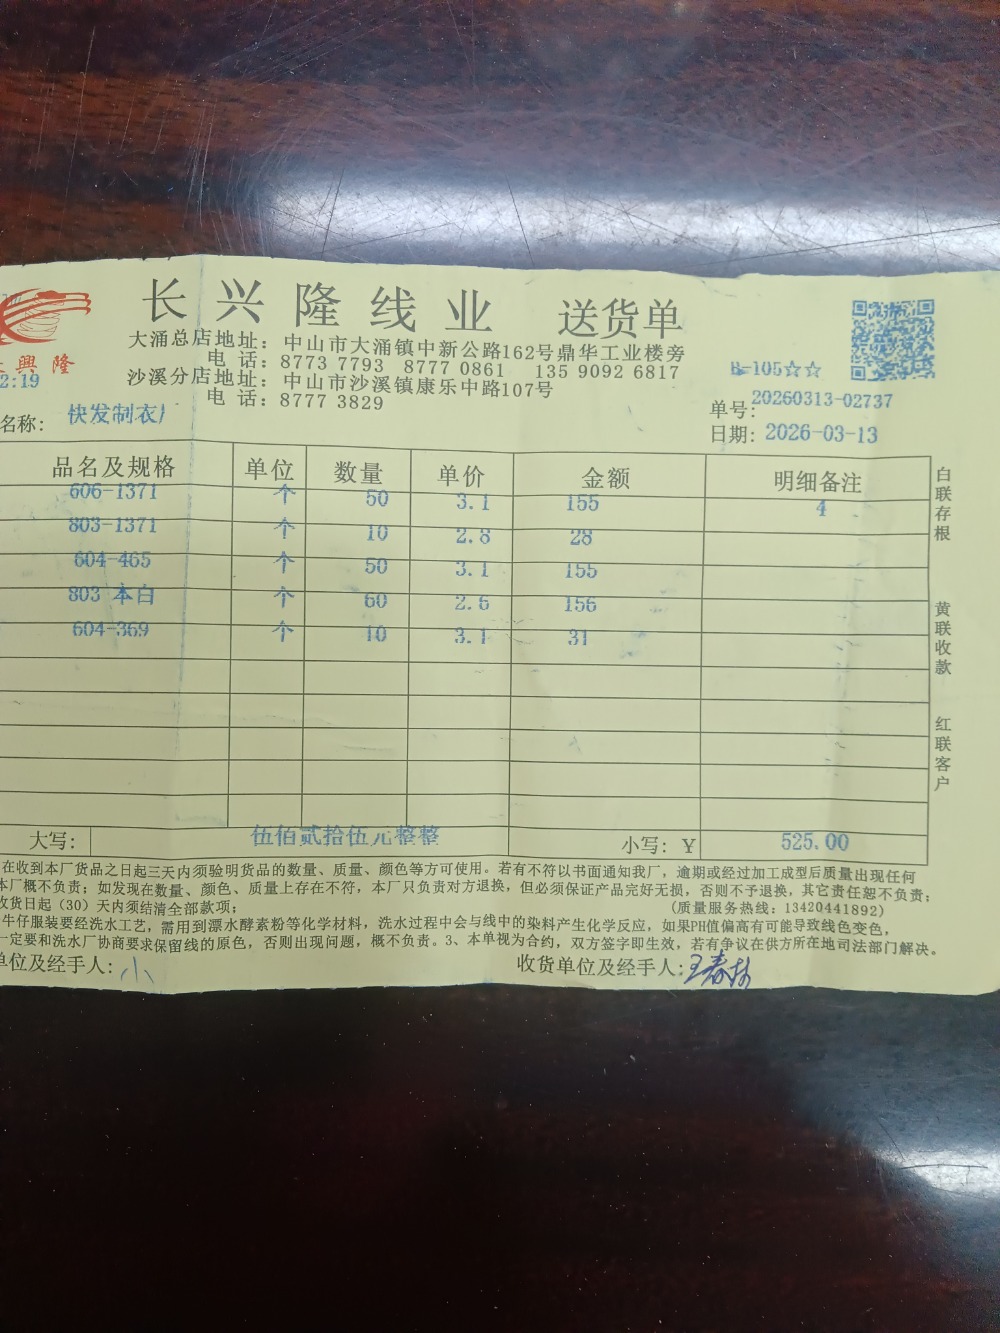 长兴隆线业 送货单
大涌总店地址：中山市大涌镇中新公路162号鼎华工业楼旁
电 话：8773 7793 8777 0861 135 9092 6817
沙溪分店地址：中山市沙溪镇康乐中路107号
电 话：8777 3829
興隆
2:19
B-105☆☆
名称：快发制衣厂
单号：20260313-02737
日期：2026-03-13
品名及规格 单位 数量 单价 金额 明细备注
606-1371 个 50 3.1 155 4
803-1371 个 10 2.8 28
604-465 个 50 3.1 155
803 本白 个 60 2.6 156
604-369 个 10 3.1 31
大写：伍佰贰拾伍元整整 小写：¥ 525.00
白联存根
黄联收款
红联客户
在收到本厂货品之日起三天内须验明货品的数量、质量、颜色等方可使用。若有不符以书面通知我厂，逾期或经过加工成型后质量出现任何
本厂概不负责；如发现在数量、颜色、质量上存在不符，本厂只负责对方退换，但必须保证产品完好无损，否则不予退换，其它责任恕不负责；
收货日起（30）天内须结清全部款项； (质量服务热线：13420441892)
牛仔服装要经洗水工艺，需用到漂水酵素粉等化学材料，洗水过程中会与线中的染料产生化学反应，如果PH值偏高有可能导致线色变色，
一定要和洗水厂协商要求保留线的原色，否则出现问题，概不负责。3、本单视为合约，双方签字即生效，若有争议在供方所在地司法部门解决。
单位及经手人：小 收货单位及经手人：王春林